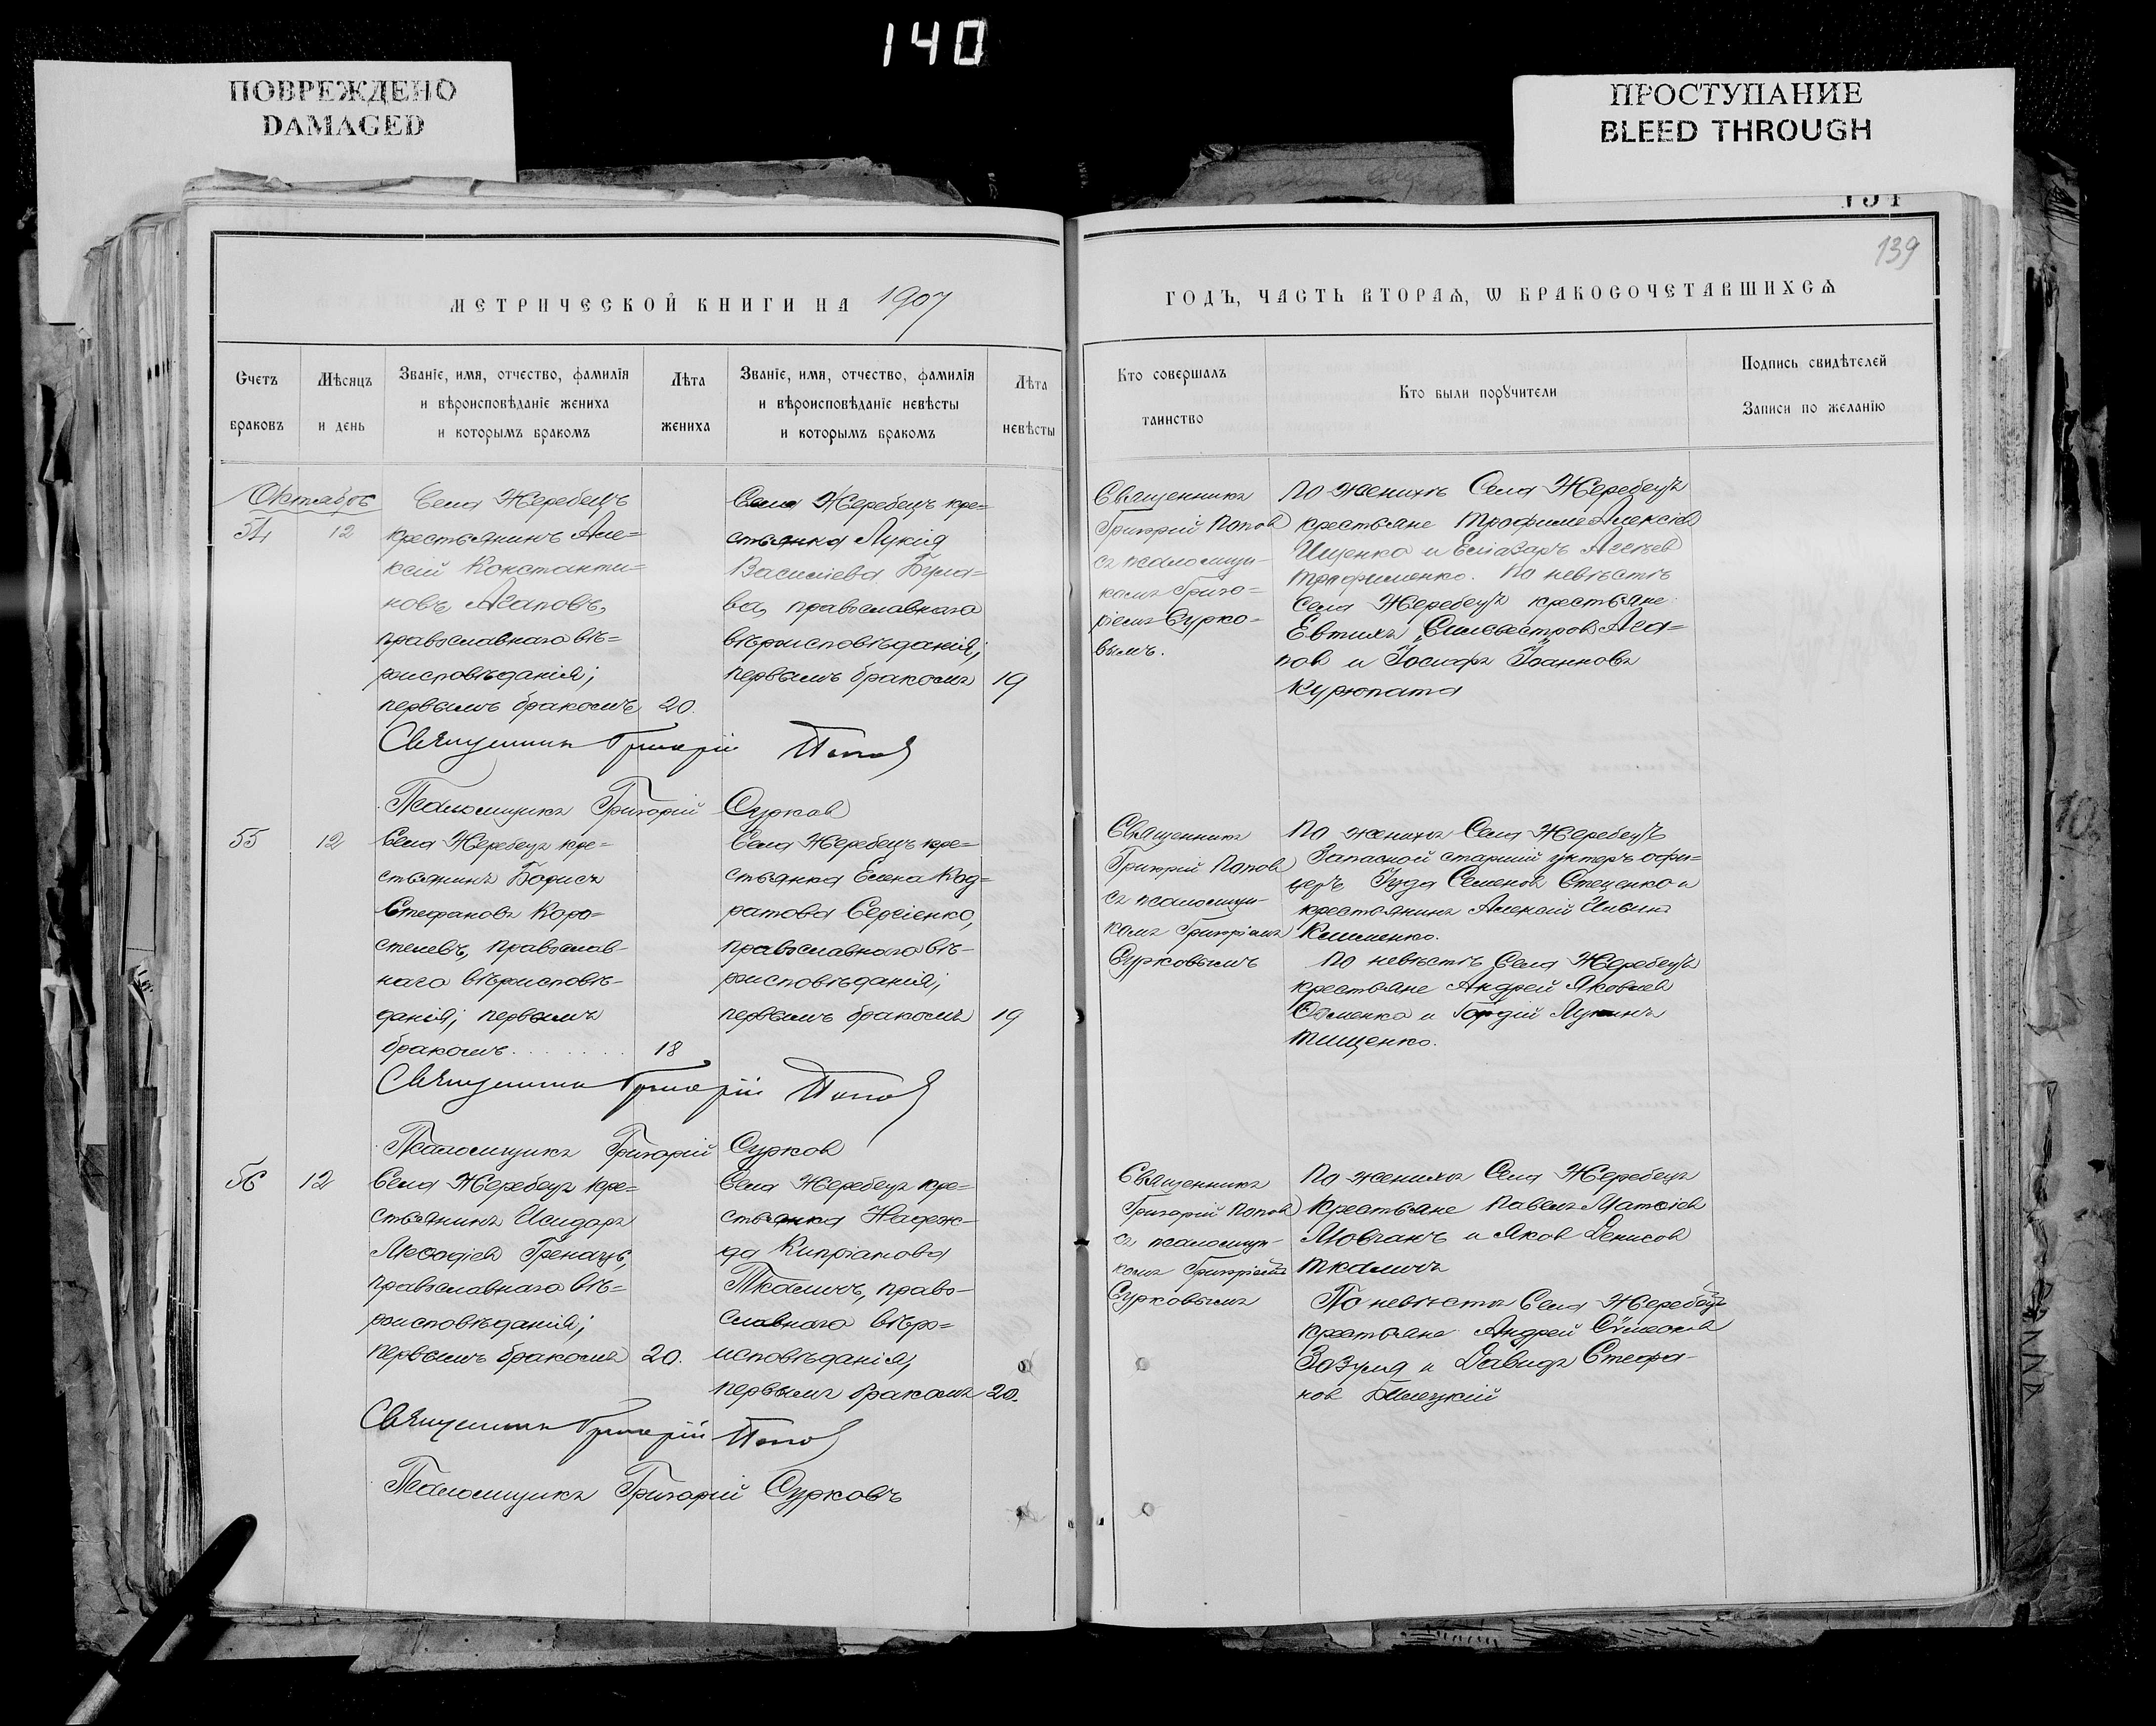 140
ПОВРЕЖДЕНО
DAMAGED
ПРОСТУПАНИЕ
BLEED THROUGH
139
МЕТРИЧЕСКОЙ КНИГИ НА 1907
ГОДЪ, ЧАСТЬ ВТОРАѦ, Ѡ БРАКОСОЧЕТАВШИХСѦ
Счетъ браковъ
Мѣсяцъ и день
Званіе, имя, отчество, фамилія и вѣроисповѣданіе жениха и которымъ бракомъ
Лѣта жениха
Званіе, имя, отчество, фамилія и вѣроисповѣданіе невѣсты и которымъ бракомъ
Лѣта невѣсты
Кто совершалъ таинство
Кто были порꙋчители
Подпись свидѣтелей Записи по желанію
Октябрь
54
12
Села Жеребецъ
крестьянинъ Але=
ксій Константи=
новъ Агаповъ,
православнаго вѣ=
роисповѣданія;
первымъ бракомъ
20.
Села Жеребецъ кре=
стьянка Лукія
Василіева Була=
ва, православнаго
вѣроисповѣданія;
первымъ бракомъ
19
Священникъ
Григорій Попов
съ псаломщи-
комъ Григо=
ріемъ Сурко-
вымъ.
По женихѣ Села Жеребецъ
крестьяне Трофимъ Алексіев
Ищенко и Елiазаръ Агѣев
Трофименко. По невѣстѣ
Села Жеребецъ крестьяне
Евтихъ Сильвестров Ага=
пов и Іосифъ Іоанновъ
Курюпата
Священникъ Григорій Попов
Псаломщикъ Григорій Сурков
55
12
Села Жеребецъ кре=
стьянинъ Борисъ
Стефановъ Коро=
стелевъ, православ-
наго вѣроисповѣ-
данія; первымъ
бракомъ . . . . . . .
18
Села Жеребецъ кре=
стьянка Елена Код=
ратова Сергіенко,
православнаго вѣ-
роисповѣданія;
первымъ бракомъ
19
Священникъ
Григорій Попов
съ псаломщи-
комъ Григоріемъ
Сурковымъ
По женихѣ Села Жеребецъ
Запасной старшій унтеръ офи=
церъ Іуда Семенов Стеценко и
крестьянинъ Алексій
Клименко.
По невѣстѣ Села Жеребецъ
крестьяне Андрей Яковлев
и Гордій Лукинъ
Тищенко.
Священникъ Григорій Попов
Псаломщикъ Григорій Сурков
56
12
Села Жеребецъ кре=
стьянинъ Исидоръ
Меѳодіев Гренацъ,
православнаго вѣ=
роисповѣданія;
первымъ бракомъ
20.
Села Жеребецъ кре=
стьянка Надеж-
да Кипріанова
Ткаличъ, право-
славнаго вѣро=
исповѣданія,
первымъ бракомъ
20.
Священникъ
Григорій Попов
съ псаломщи-
комъ Григоріемъ
Сурковымъ
По женихѣ Села Жеребецъ
Крестьяне Павелъ Матѳіев
Мовчанъ и Яков Денисов
Ткаличъ
По невѣстѣ Села Жеребецъ
крестьяне Андрей Сѵмеонов
Зозуля и Давидъ Стефа-
нов Билецкій
Священникъ Григорій Попов
Псаломщикъ Григорій Сурковъ